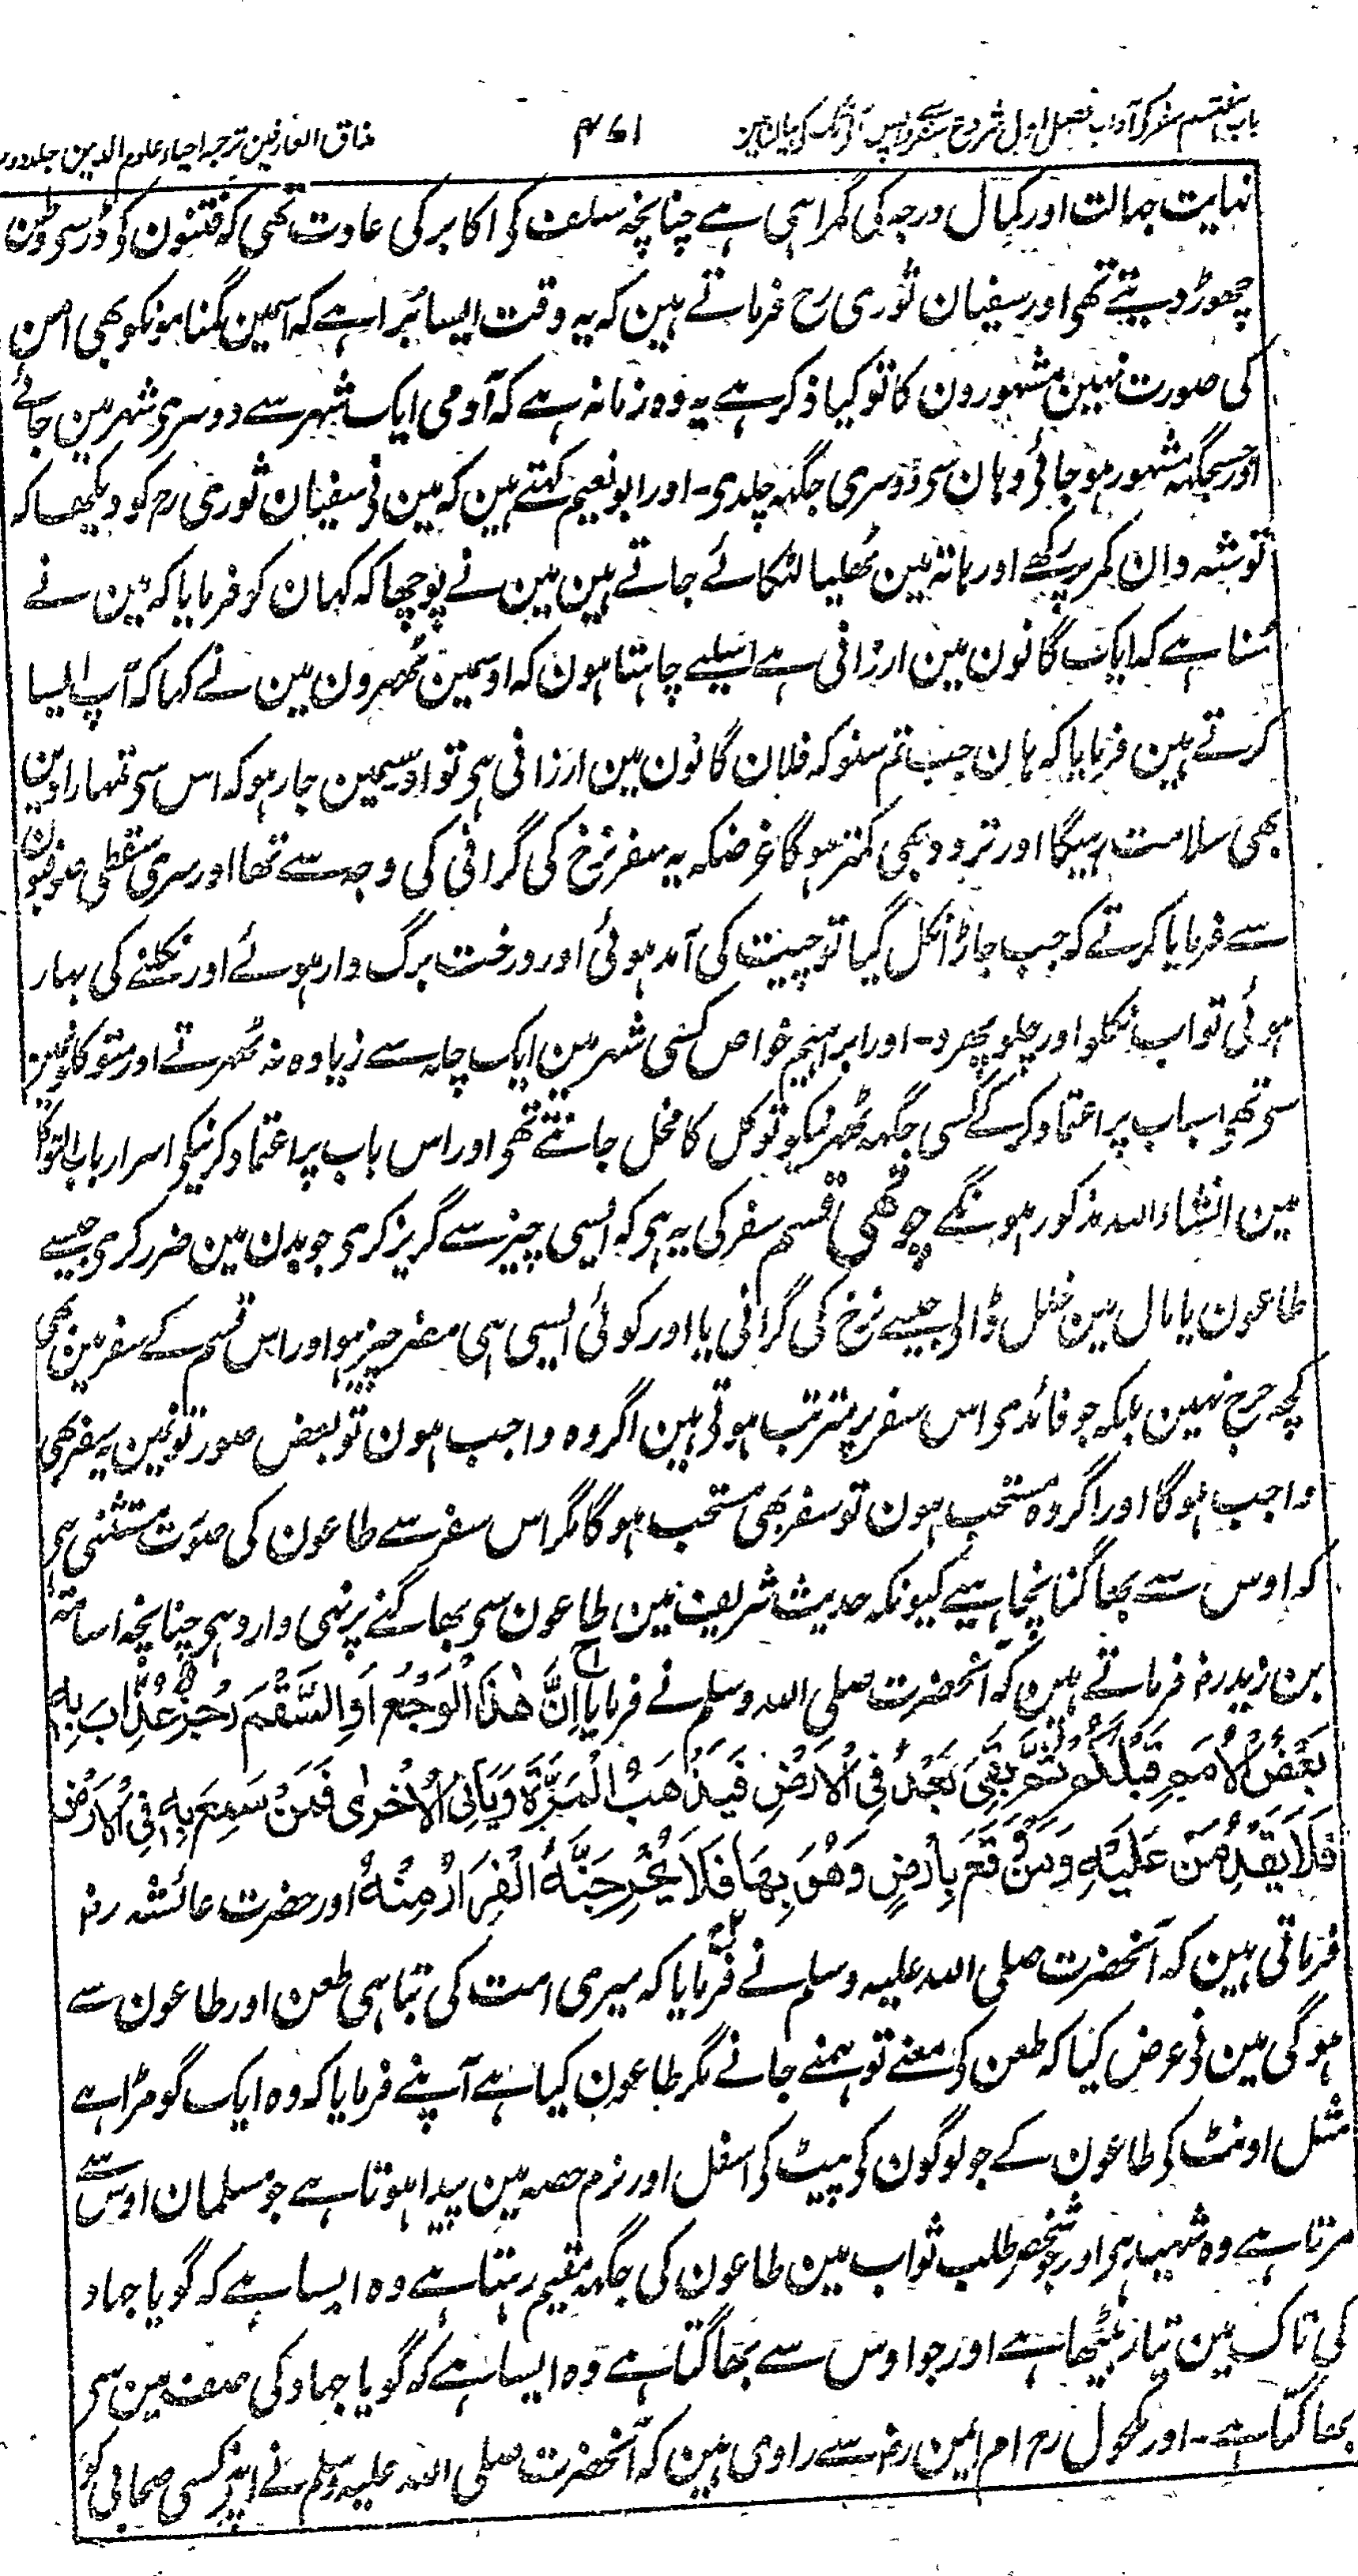 باب ہفتم سفر کے آداب فصل اول شروع سفر سے واپس آنے تک کی بیان مین
۴۷۱
مذاق العارفین ترجمہ احیاء علوم الدین جلد دوم
نہایت جہالت اور کمال درجہ کی گمراہی ہے چنانچہ سلف کی اکابر کی عادت تھی کہ فتنون کو ڈر سی وطن
چھوڑ دیتے تھی اور سفیان ثوری رح فرماتے ہین کہ یہ وقت ایسا بُرا ہے کہ اسمین گمنامونکو بھی امن
کی صورت نہین مشہورون کا تو کیا ذکر ہے یہ وہ زمانہ ہے کہ آدمی ایک شہر سے دوسری شہر مین جائے
اور جسجگہہ مشہور ہو جائی وہان سی دوسری جگہہ چلدی۔ اور ابو نعیم کہتے ہین کہ مین نی سفیان ثوری رح کو دیکھا کہ
توشہ دان کمر پر رکھے اور ہاتہ مین ٹھلیا لٹکائے جاتے ہین مین نے پوچھا کہ کہان کو فرمایا کہ مین نے
سُنا ہے کہ ایک گانون مین ارزانی ہے اسلیے چاہتا ہون کہ اوسمین ٹھہرون مین نے کہا کہ آپ ایسا
کرتے ہین فرمایا کہ ہان جب تم سنو کہ فلان گانون مین ارزانی ہی تو اوسیمین جا رہو کہ اس سی تمہارا دین
بھی سلامت رہیگا اور تردد بھی کمتر ہوگا غرضکہ یہ سفر نرخ کی گرانی کی وجہ سے تھا اور سری سقطی صوفیون
سے فرمایا کرتے کہ جب جاڑا نکل گیا تو چیت کی آمد ہوئی اور درخت برگ دار ہوئے اور نکلنے کی بہار
ہوئی تو اب نکلو اور چلو پھرو۔ اور ابراہیم خواص کسی شہر مین ایک چلہ سے زیادہ نہ ٹھہرتے اور متوکلونمین
سی تھی اسباب پر اعتماد کرکے کسی جگہہ ٹھہرنیکو توکل کا مخل جانتے تھی اور اس باب پر اعتماد کرنیکی اسرار باب التوکل
مین انشاء اللہ مذکور ہونگے چوتھی قسم سفر کی یہ ہی کہ ایسی چیز سے گریز کری جو بدن مین ضرر کری جیسے
طاعون یا مال مین خلل ڈالی جیسے نرخ کی گرانی یا اور کوئی ایسی ہی مضر چیز ہو اور اس قسم کے سفر مین بھی
کچھ حرج نہین بلکہ جو فائدی اس سفر پر مترتب ہوتی ہین اگر وہ واجب ہون تو بعض صورتونمین یہ سفر بھی
واجب ہوگا اور اگر وہ مستحب ہون تو سفر بھی مستحب ہوگا مگر اس سفر سے طاعون کی صورت مستثنی ہی
کہ اوس سے بھاگنا نچاہیے کیونکہ حدیث شریف مین طاعون سی بھاگنے پر نہی وارد ہی چنانچہ اسامہ
بن زید رضہ فرماتے ہین کہ آنحضرت صلی اللہ وسلم نے فرمایا اِنَّ هٰذَا الْوَجْعَ اَوِ السَّقْمَ رُجْزٌ عُذِّابَ بِهٖ
بَعْضُ الْاُمَمِ قَبْلَكُمْ ثُمَّ بَقِیَ بَعْدُ فِی الْاَرْضِ فَیَذْهَبُ الْمَرَّةَ وَیَأْتِی الْاُخْرٰی فَمَنْ سَمِعَ بِهٖ فِی الْاَرْضِ
فَلَا یَقْدِمَنَّ عَلَیْهِ وَمَنْ وَّقَعَ بِأَرْضٍ وَهُوَ بِهَا فَلَا یُخْرِجَنَّهُ الْفِرَارُ مِنْهُ اور حضرت عائشہ رضہ
فرماتی ہین کہ آنحضرت صلی اللہ علیہ وسلم نے فرمایا کہ میری امت کی تباہی طعن اور طاعون سے
ہوگی مین نی عرض کیا کہ طعن کی معنے تو ہمنے جانے مگر طاعون کیا ہے آپنے فرمایا کہ وہ ایک گومڑا ہے
مثل اونٹ کی طاعون کے جو لوگون کی پیٹ کی اسفل اور نرم حصہ مین پیدا ہوتا ہے جو مسلمان اوس سے
مرتا ہے وہ شہید ہی اور جو شخص طلب ثواب مین طاعون کی جگہہ مقیم رہتا ہے وہ ایسا ہے کہ گویا جہاد
کی تاک مین تیار بیٹھا ہے اور جو اوس سے بھاگتا ہے وہ ایسا ہے کہ گویا جہاد کی صف مین سی
بھاگتا ہے۔ اور مکحول رح ام ایمن رضہ سے راوی ہین کہ آنحضرت صلی اللہ علیہ وسلم نے اپنے کسی صحابی کو